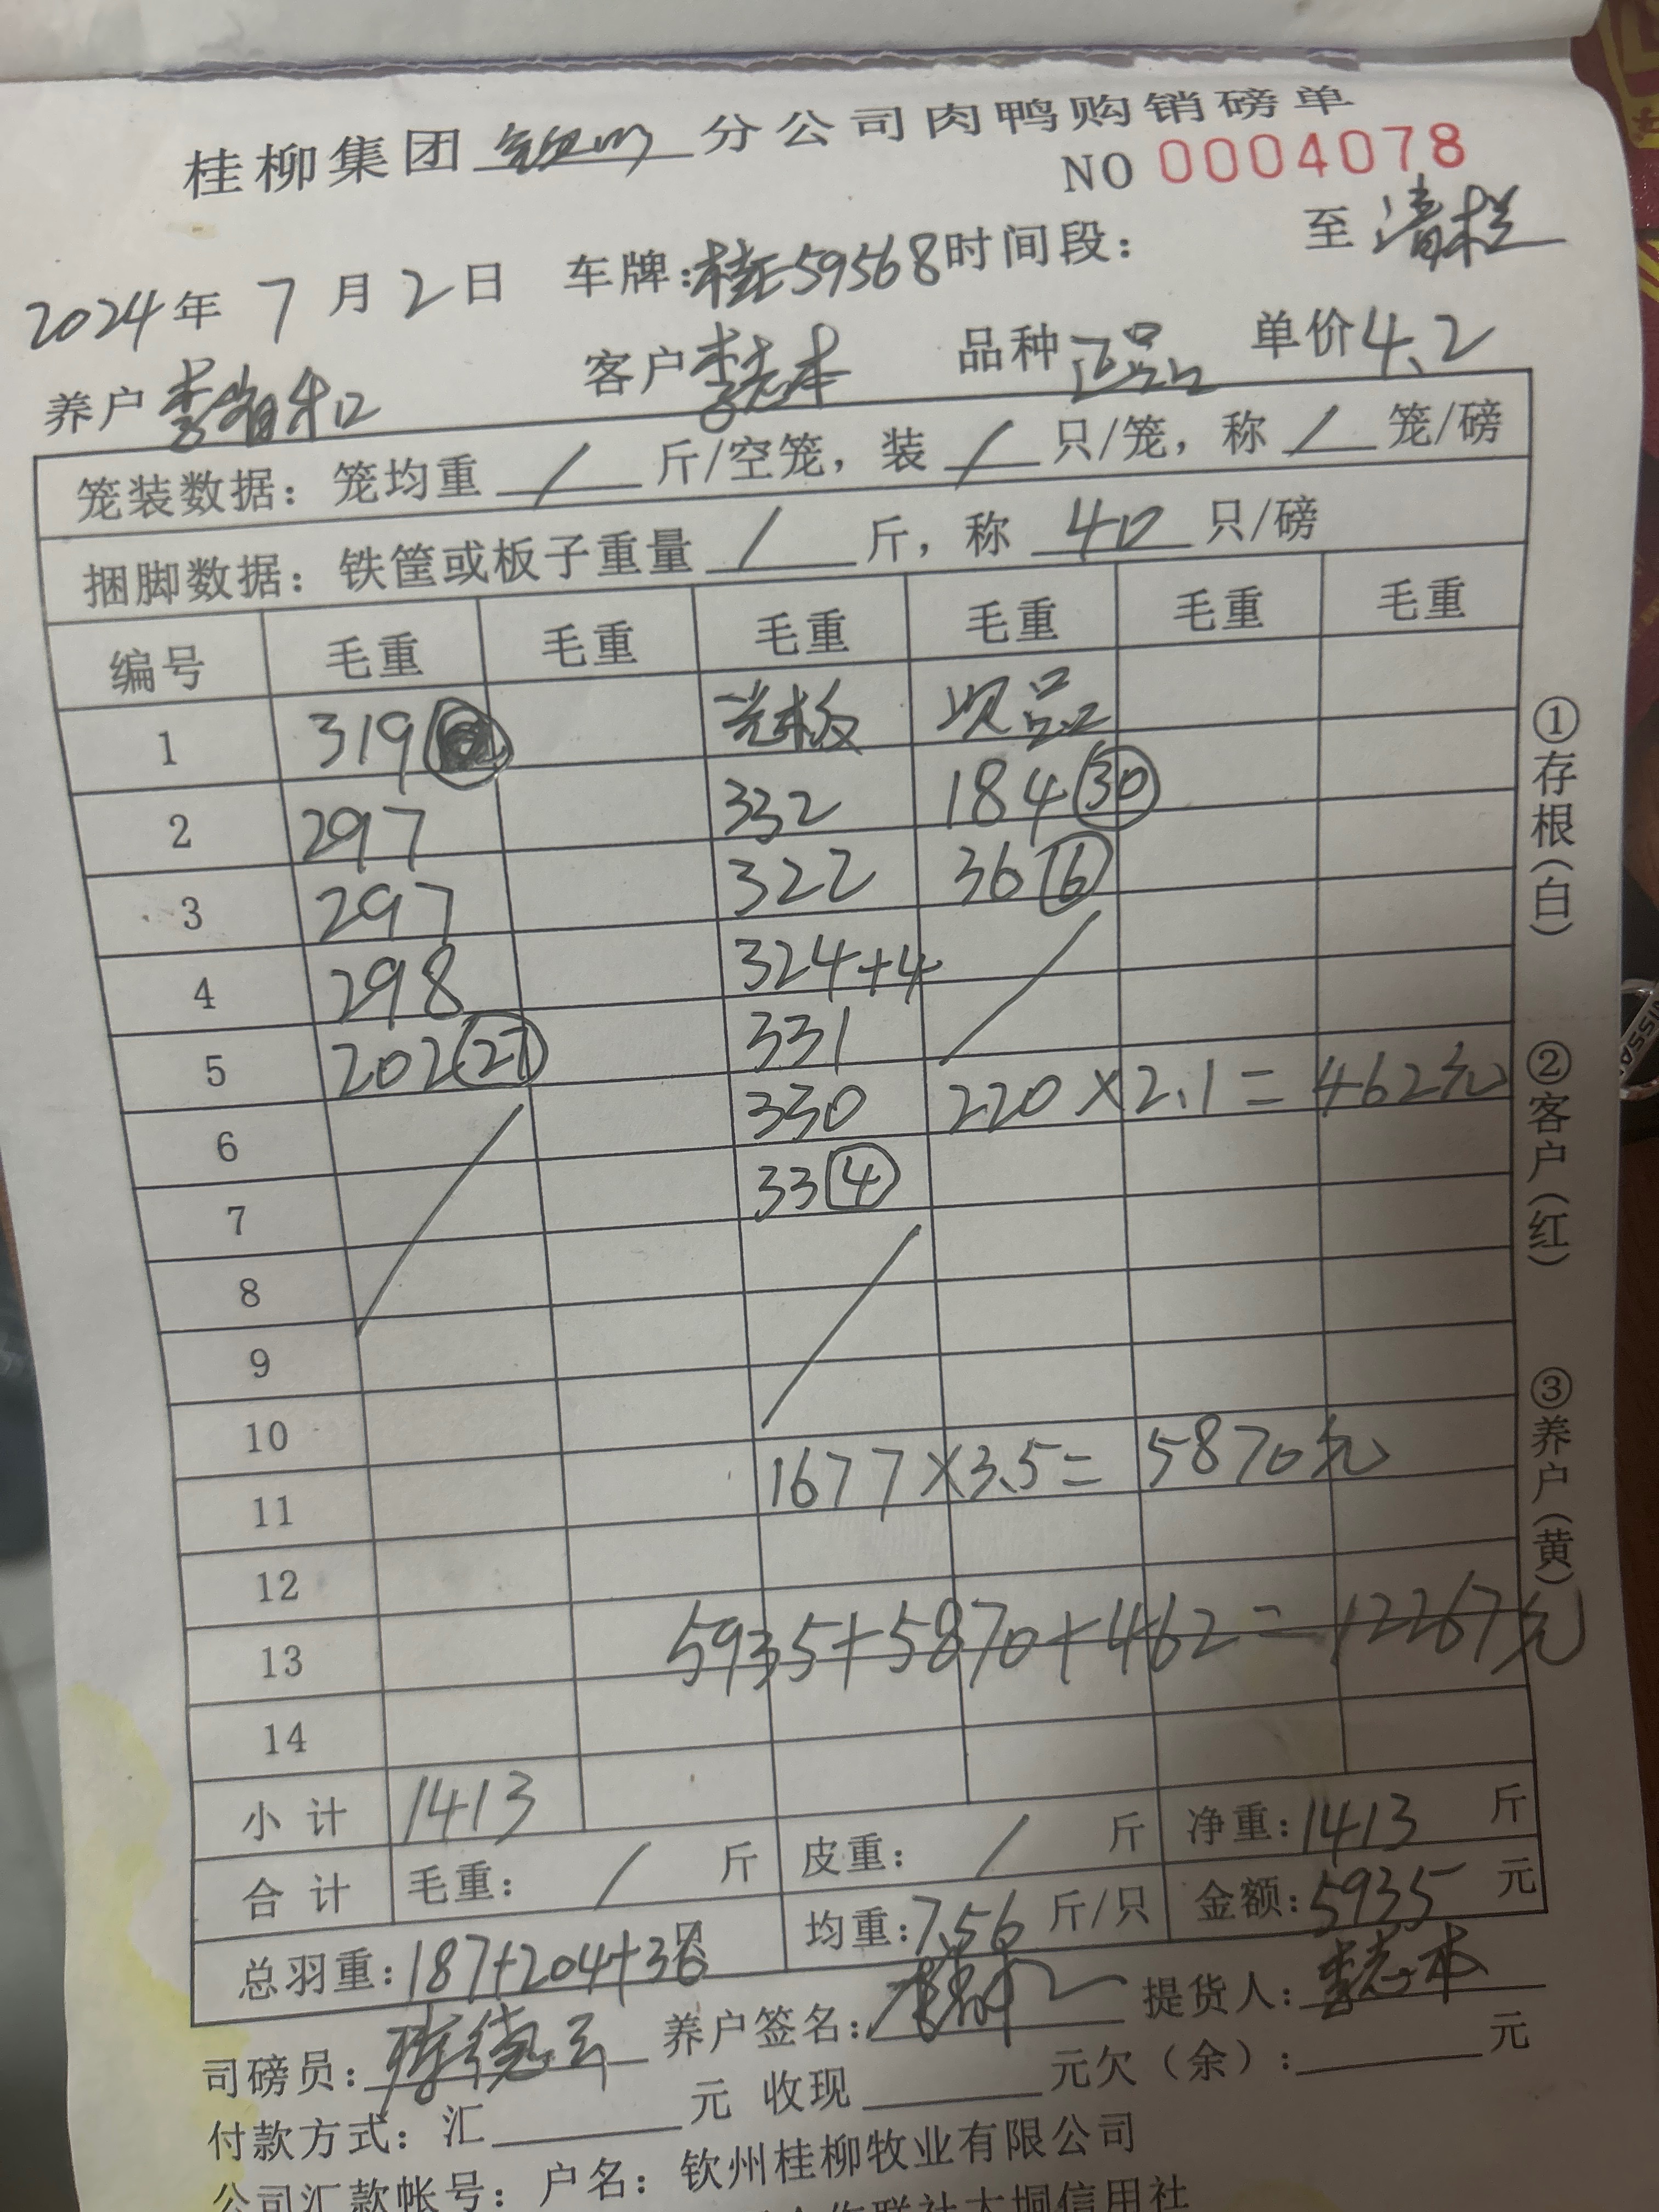 桂柳集团 钦州 分公司肉鸭购销磅单
NO 0004078
2024年 7 月 2 日 车牌:桂E59568 时间段: 至 清栏
养户 李 和 客户 李志本 品种 正品 单价 4.2
笼装数据: 笼均重 / 斤/空笼, 装 / 只/笼, 称 / 笼/磅
捆脚数据: 铁筐或板子重量 / 斤, 称 40 只/磅
编号 毛重 毛重 毛重 毛重 毛重 毛重
1 319 光板 次品
2 297 332 184 30
3 297 322 36 6
4 298 324+4
5 202 27 331
6 330 220×2.1= 462元
7 33 4
8
9
10
11 1677×3.5= 5870元
12
13 5935+5870+462=12267元
14
小计 1413
合计 毛重: / 斤 皮重: / 斤 净重: 1413 斤
总羽重: 187+204+36只 均重: 7.56 斤/只 金额: 5935 元
司磅员: 养户签名: 提货人: 李志本
付款方式: 汇 元 收现 元欠(余): 元
公司汇款帐号: 户名: 钦州桂柳牧业有限公司
合作联社大垌信用社
①存根(白)
②客户(红)
③养户(黄)